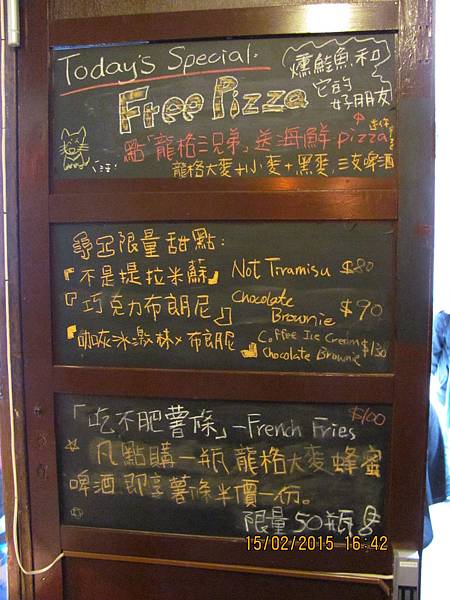 Today's Special:
Free Pizza
燻鮭魚和
它的
好朋友
點「龍格三兄弟」送海鮮 pizza
龍格大麥+小麥+黑麥,三支啤酒
手工限量甜點:
『不是提拉米蘇』 Not Tiramisu $80
『巧克力布朗尼』 Chocolate Brownie $90
『咖灰冰激林×布朗尼』 Coffee Ice Cream Chocolate Brownie $130
「吃不肥薯條」-French Fries $100
☆ 凡點購一瓶龍格大麥蜂蜜
啤酒 即享薯條半價一份。
限量50瓶
15/02/2015 16:42